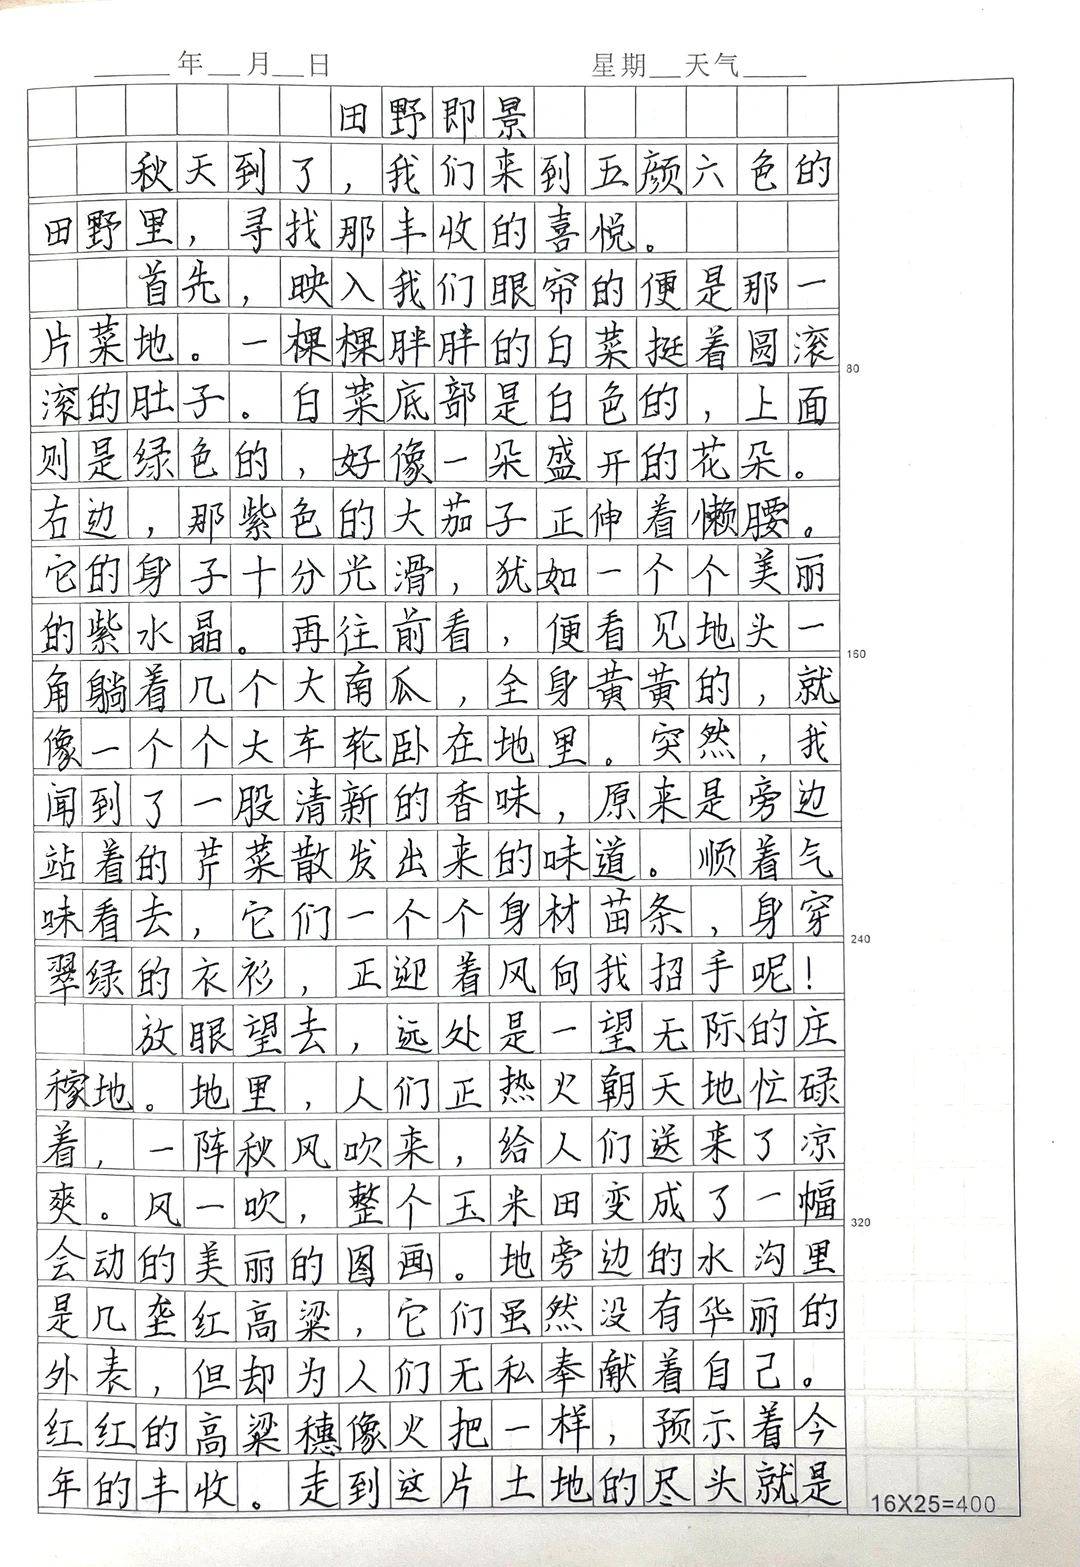 ____年__月__日 星期__天气____
田野即景
秋天到了，我们来到五颜六色的
田野里，寻找那丰收的喜悦。
首先，映入我们眼帘的便是那一
片菜地。一棵棵胖胖的白菜挺着圆滚
80
滚的肚子。白菜底部是白色的，上面
则是绿色的，好像一朵盛开的花朵。
右边，那紫色的大茄子正伸着懒腰。
它的身子十分光滑，犹如一个个美丽
的紫水晶。再往前看，便看见地头一
160
角躺着几个大南瓜，全身黄黄的，就
像一个个大车轮卧在地里。突然，我
闻到了一股清新的香味，原来是旁边
站着的芹菜散发出来的味道。顺着气
味看去，它们一个个身材苗条，身穿
240
翠绿的衣衫，正迎着风向我招手呢！
放眼望去，远处是一望无际的庄
稼地。地里，人们正热火朝天地忙碌
着，一阵秋风吹来，给人们送来了凉
爽。风一吹，整个玉米田变成了一幅
320
会动的美丽的图画。地旁边的水沟里
是几垄红高粱，它们虽然没有华丽的
外表，但却为人们无私奉献着自己。
红红的高粱穗像火把一样，预示着今
年的丰收。走到这片土地的尽头就是
16X25=400